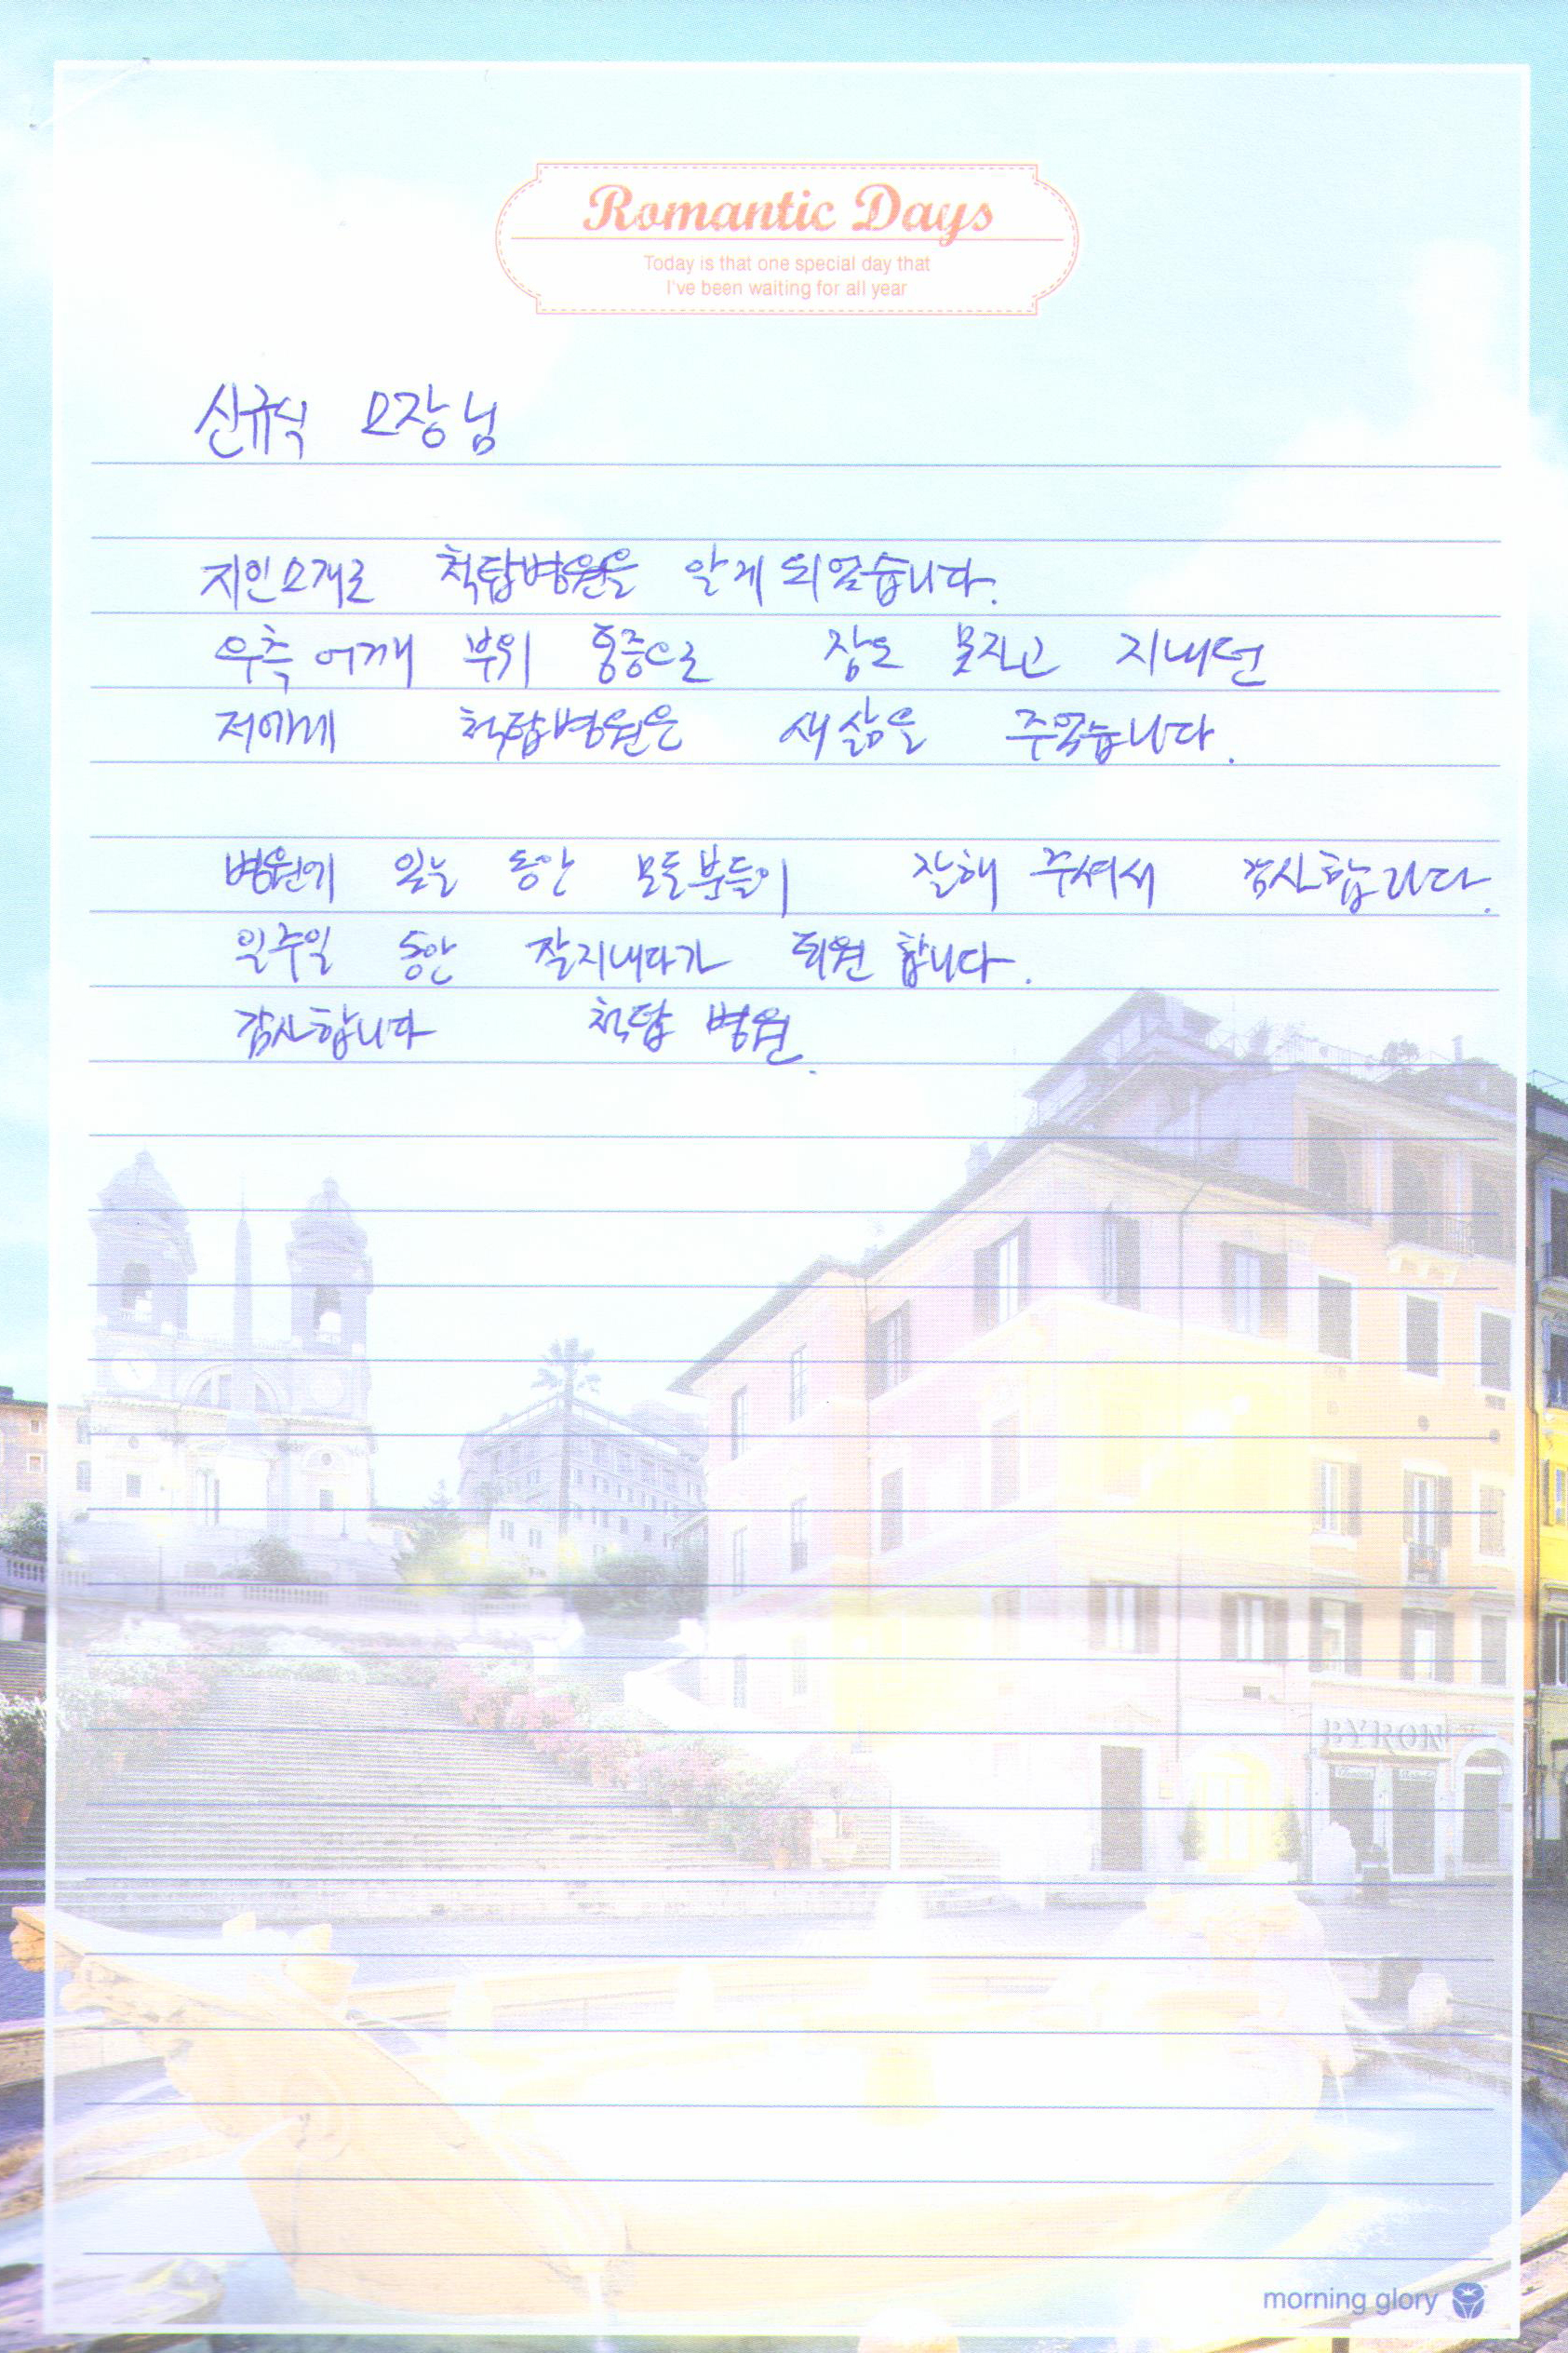 Romantic Days
Today is that one special day that
I've been waiting for all year
신규식 요장님
지인소개로 척탑병원을 알게 되었습니다.
우측 어깨 부위 통증으로 잠도 못자고 지내던
저에게 척탑병원은 새삶을 주었습니다.
병원에 있는 동안 모든분들이 잘해 주셔서 감사합니다.
일주일 동안 잘지내다가 퇴원 합니다.
감사합니다 척탑 병원.
BYRON
morning glory